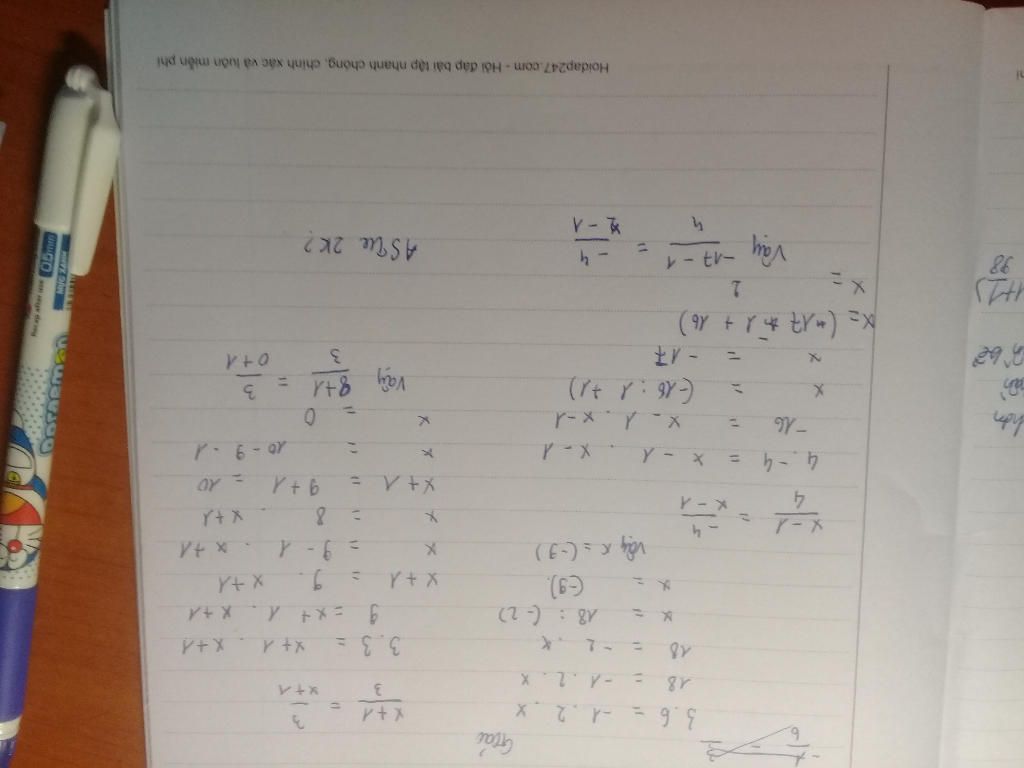 Giải
3.6 = -1.2.x
18 = -1.2.x
18 = -2.x
x = 18 : (-2)
x = (-9).
Vậy x = (-9)
x-1/4 = -4/x-1
4.-4 = x-1 . x-1
-16 = x-1 . x-1
x = (-16 : 1 +1)
x = -17
x =
2
Vậy -17-1/4 = -4/2-1
x+1/3 = 3/x+1
3.3 = x+1 . x+1
9 = x+1 . x+1
x+1 = 9. x+1
x = 9-1 . x+1
x = 8 . x+1
x+1 = 9+1 = 10
x = 10-9-1
x = 0
Vậy 8+1/3 = 3/0+1
2K?
Hoidap247.com - Hỏi đáp bài tập nhanh chóng, chính xác và luôn miễn phí
98
0.5mm